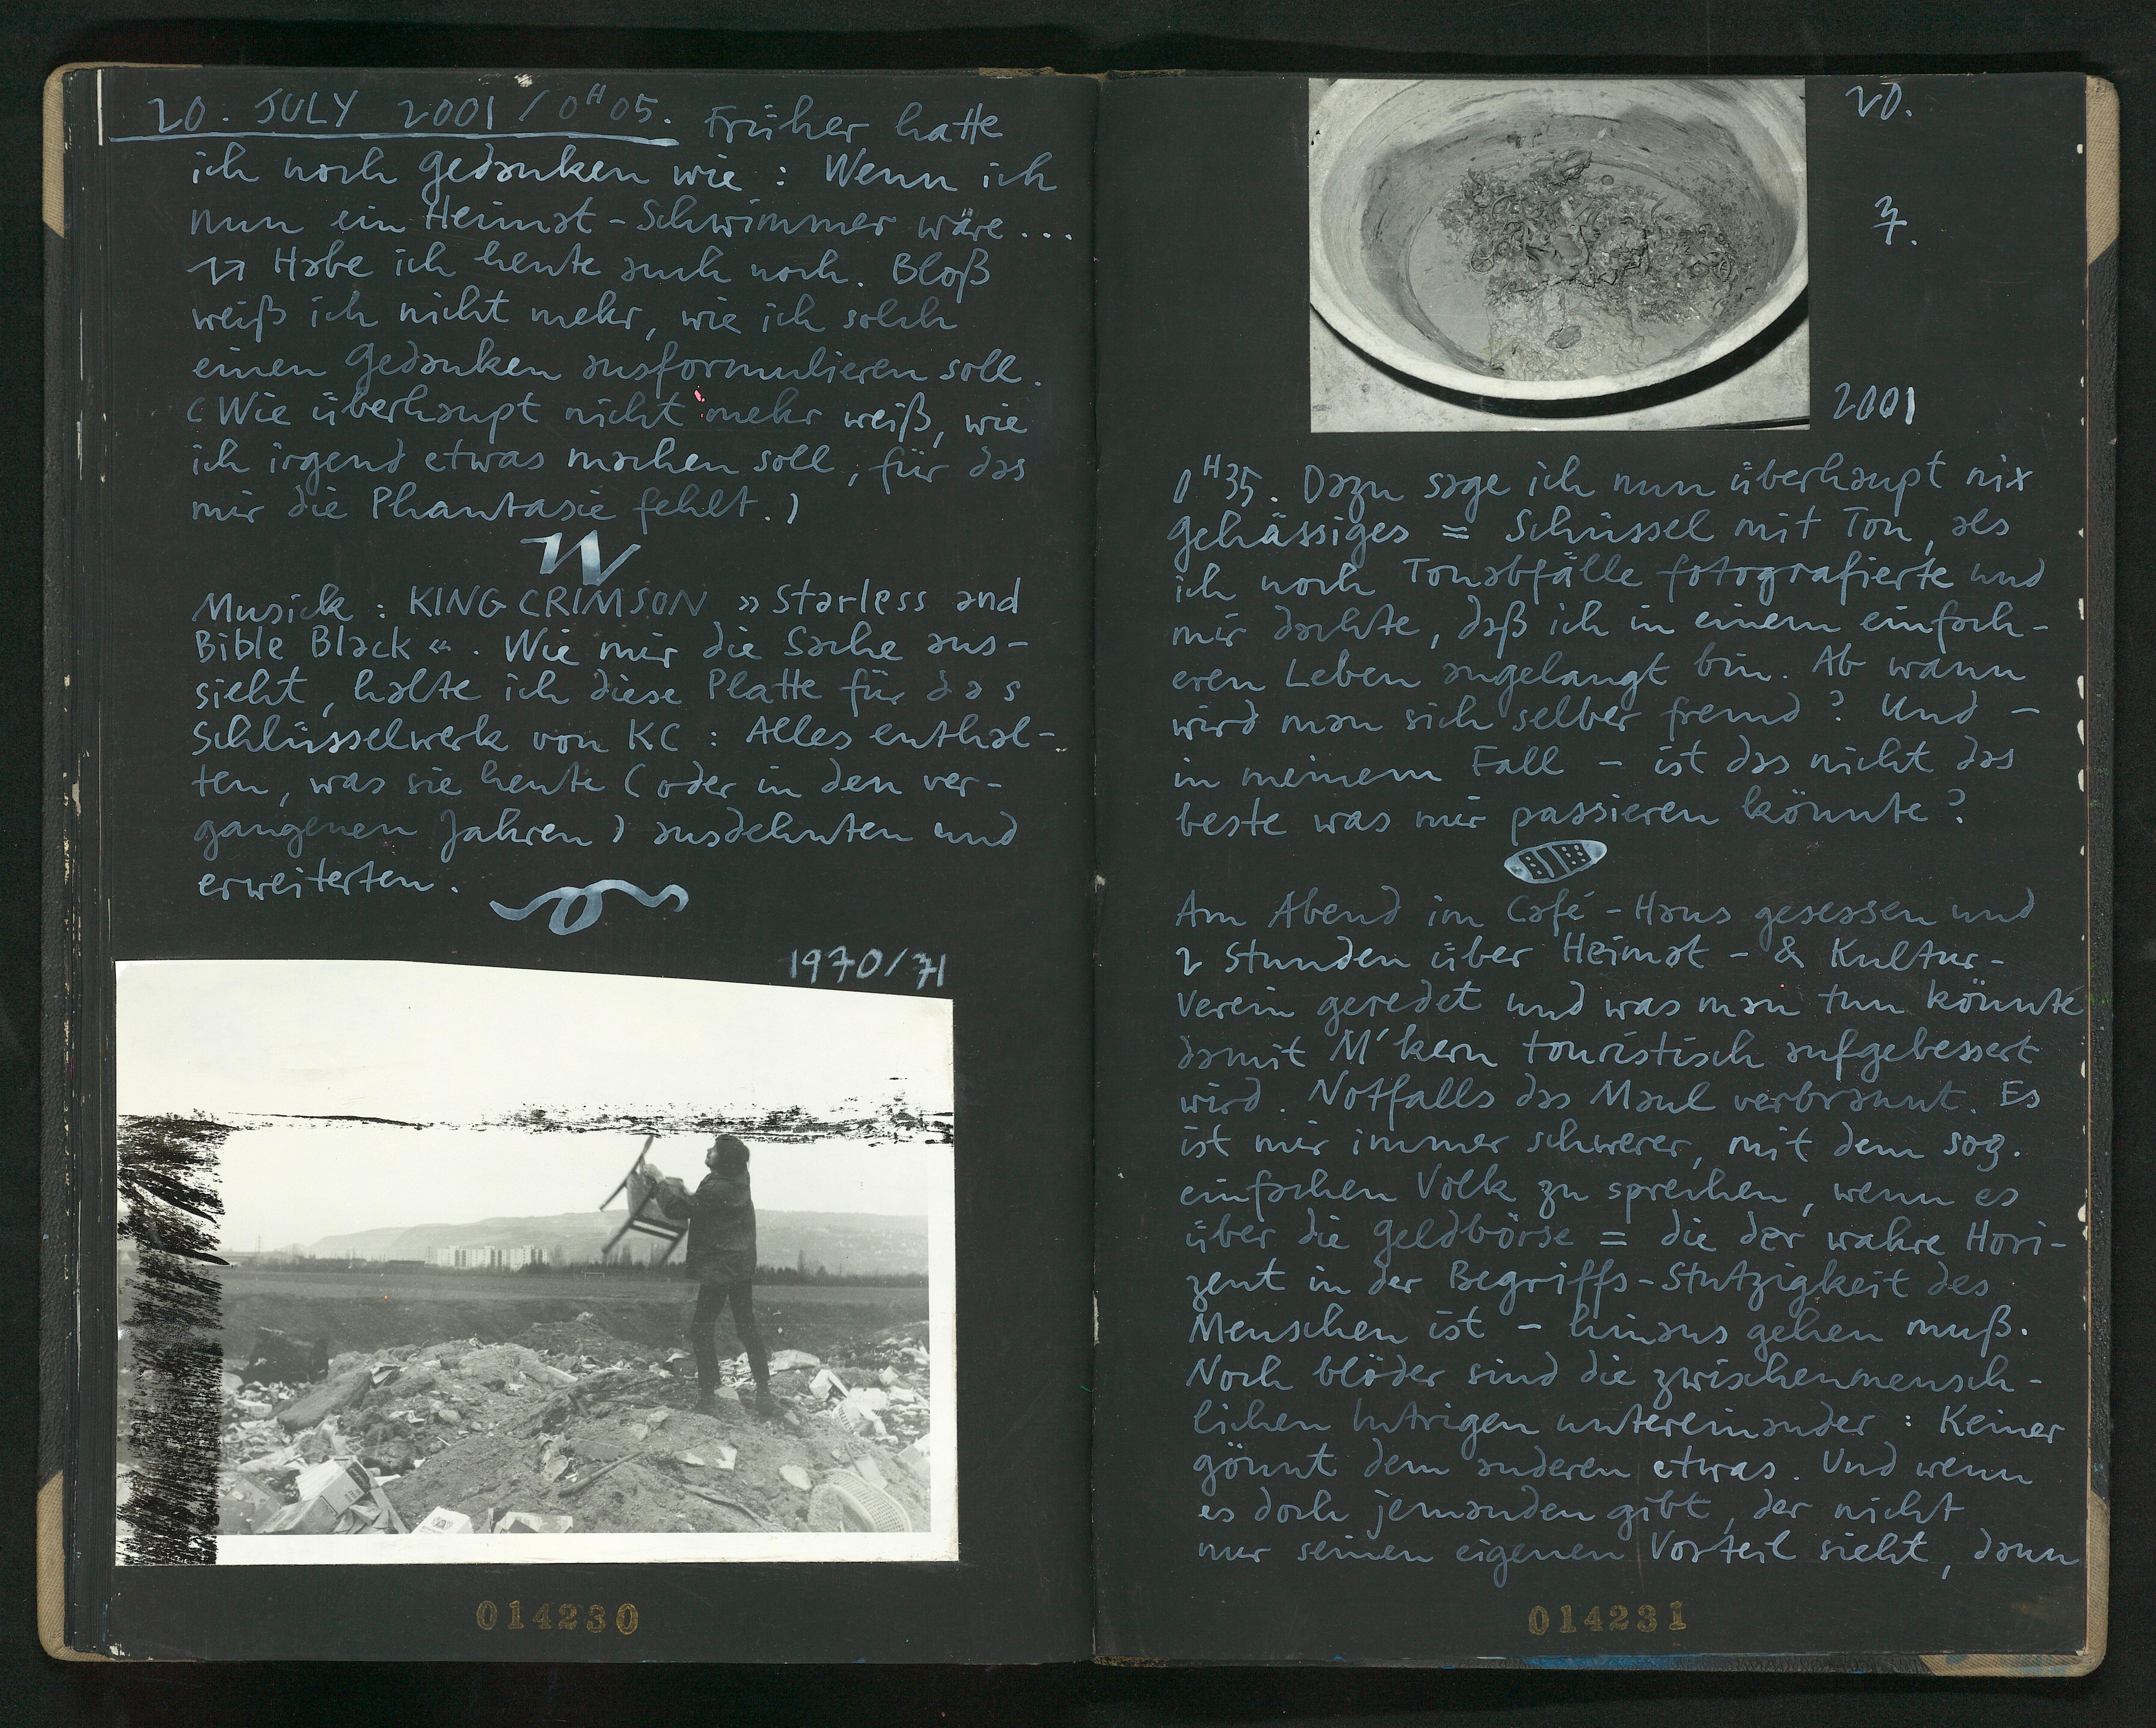 20. JULY 2001 / 0ᴴ05. Früher hatte
ich noch Gedanken wie : Wenn ich
nun ein Heimat-Schwimmer wäre...
Habe ich heute auch noch. Bloß
weiß ich nicht mehr, wie ich solch
einen Gedanken ausformulieren soll.
(Wie überhaupt nicht mehr weiß, wie
ich irgend etwas machen soll, für das
mir die Phantasie fehlt.)
Musick : KING CRIMSON »Starless and
Bible Black«. Wie mir die Sache aus-
sieht, halte ich diese Platte für das
Schlüsselwerk von KC : Alles enthal-
ten, was sie heute (oder in den ver-
gangenen Jahren) ausdehnten und
erweiterten.
1970/71
014230
20.
7.
2001
0ᴴ35. Dazu sage ich nun überhaupt nix
gehässiges = Schüssel mit Ton, als
ich noch Tonabfälle fotografierte und
mir dachte, daß ich in einem einfach-
eren Leben angelangt bin. Ab wann
wird man sich selber fremd? Und -
in meinem Fall - ist das nicht das
beste was mir passieren könnte?
Am Abend im Café-Haus gesessen und
2 Stunden über Heimat- & Kultur-
Verein geredet und was man tun könnte
damit M'kern touristisch aufgebessert
wird. Notfalls das Maul verbrannt. Es
ist mir immer schwerer, mit dem sog.
einfachen Volk zu sprechen, wenn es
über die Geldbörse = die der wahre Hori-
zent in der Begriffs-Stutzigkeit des
Menschen ist - hinaus gehen muß.
Noch blöder sind die zwischenmensch-
lichen Intrigen untereinander : Keiner
gönnt dem anderen etwas. Und wenn
es doch jemanden gibt, der nicht
nur seinen eigenen Vorteil sieht, dann
014231